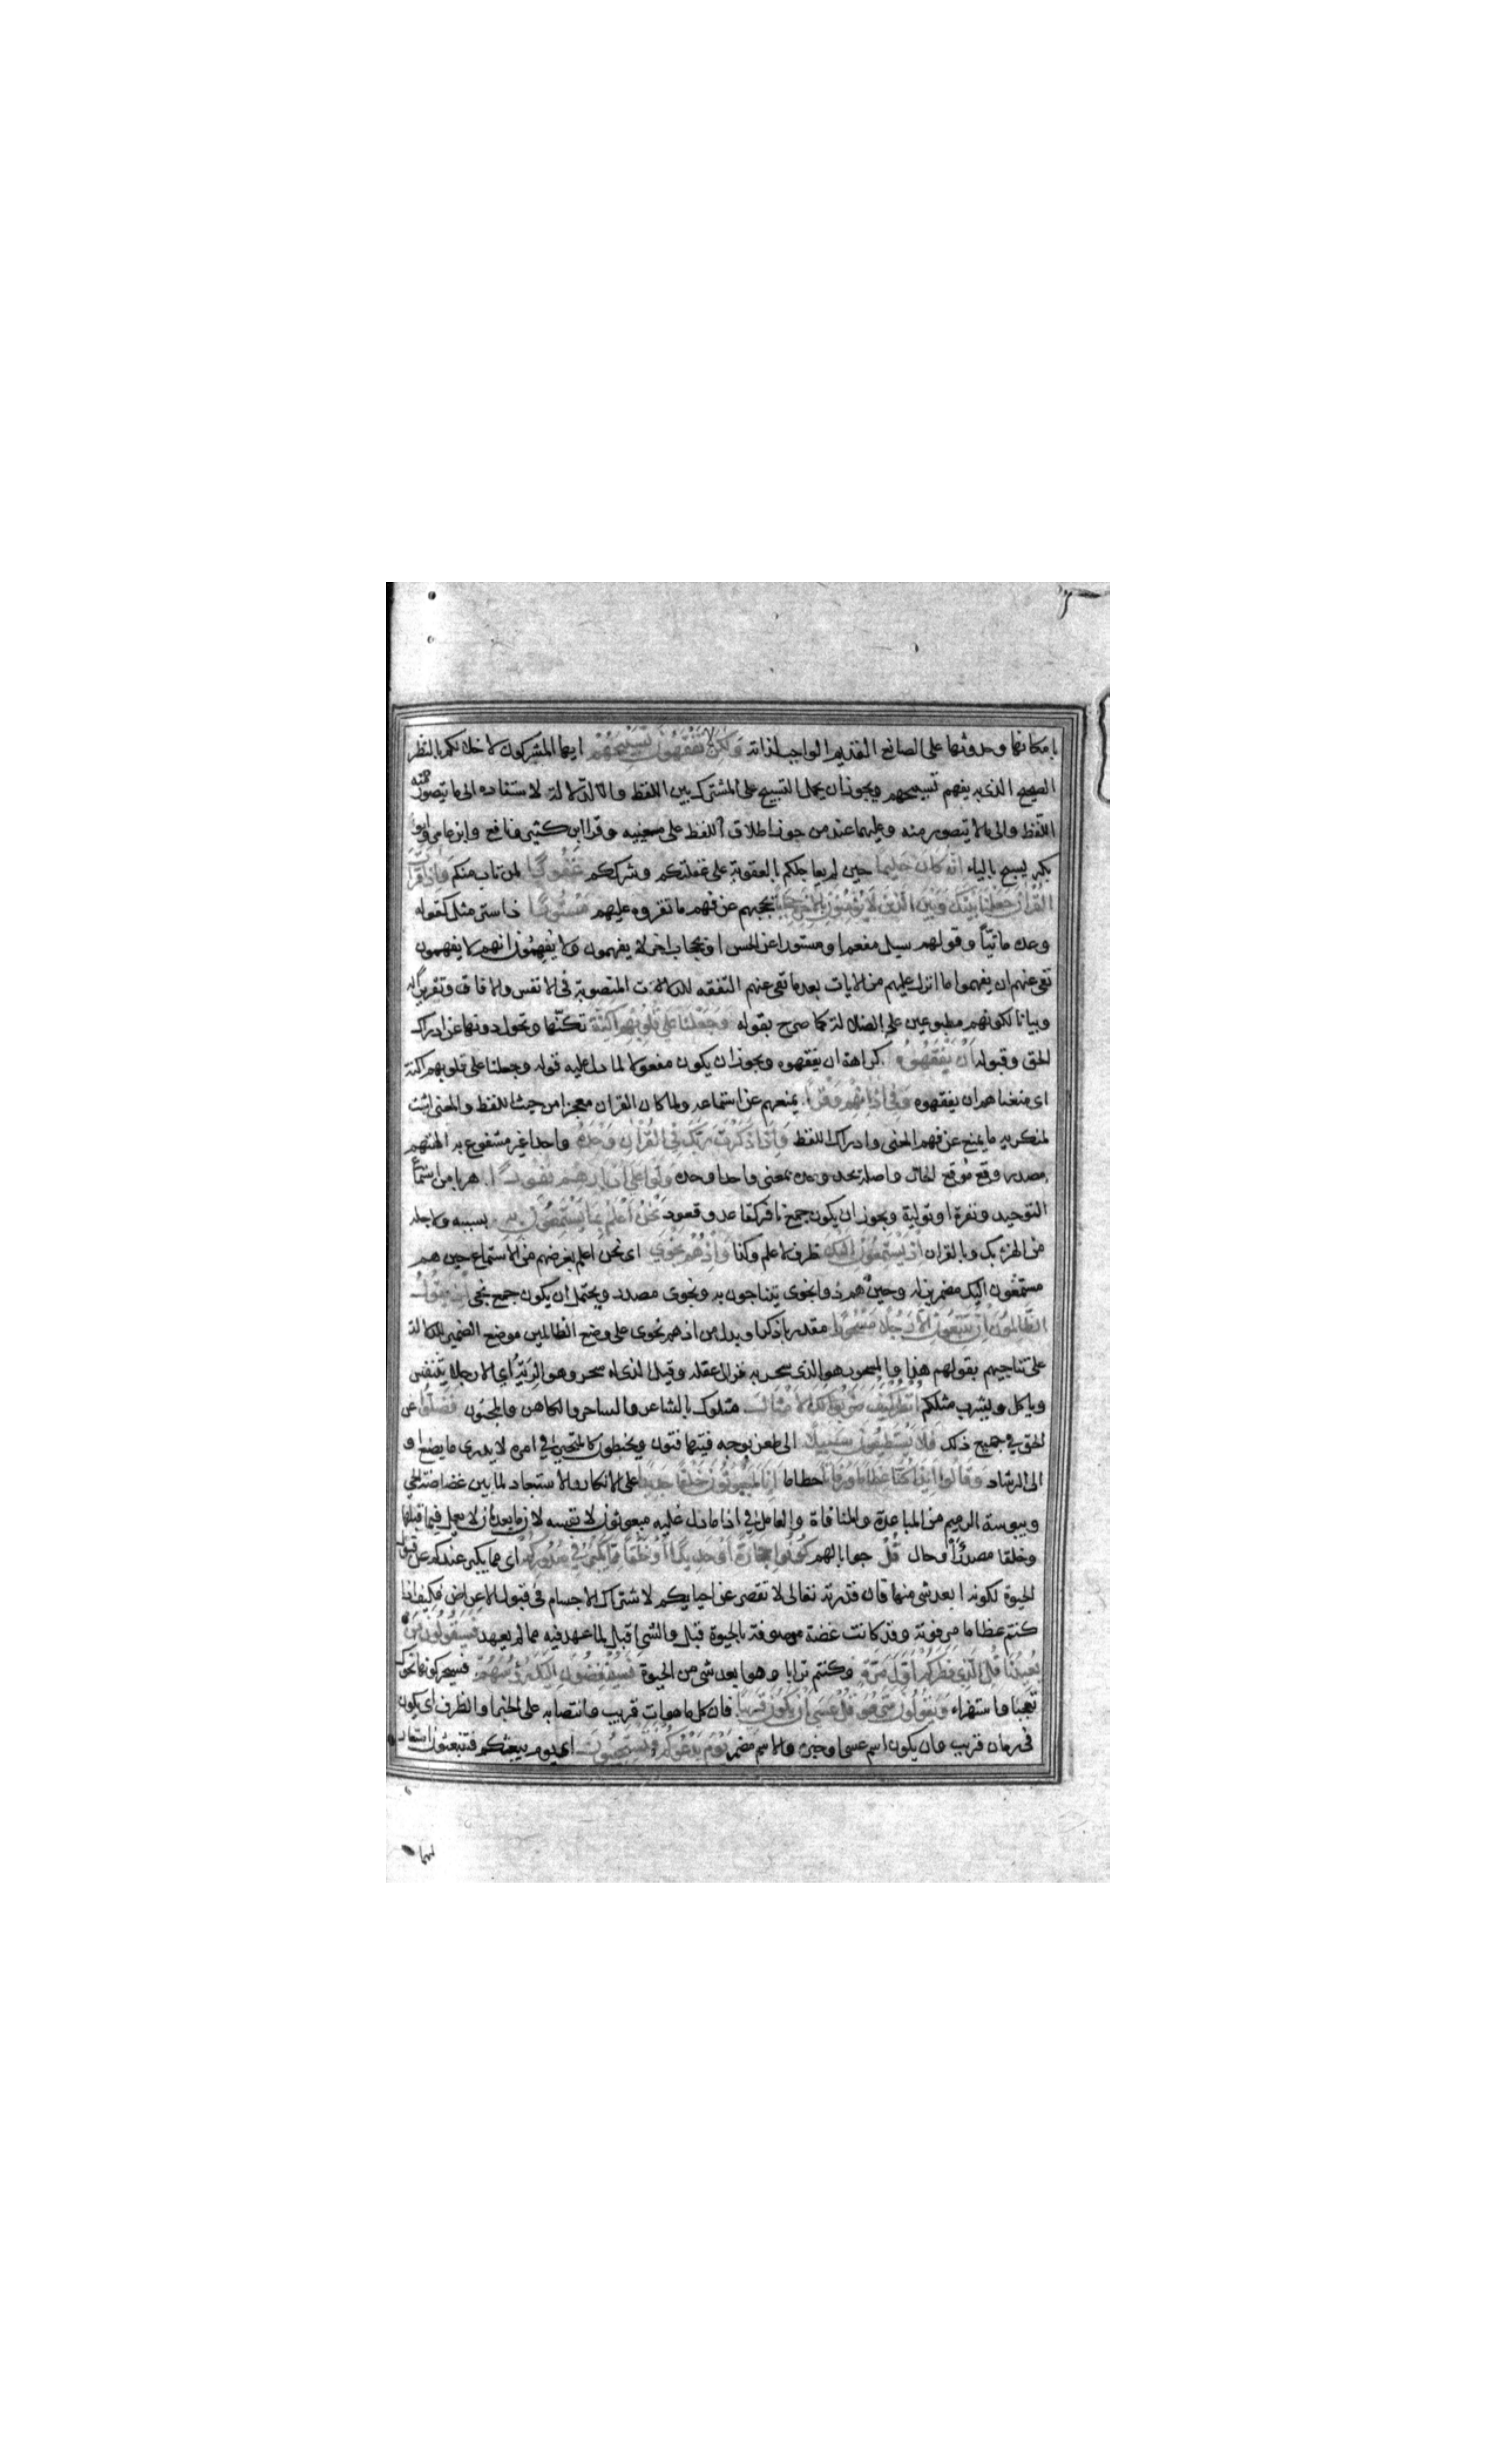 بامكانها وحدوثها على الصانع القديم الواجب لذاته وَلَكِنْ لَا تَفْقَهُونَ تَسْبِيحَهُمْ ايها المشركون لاخلالكم بالنظر
الصحيح الذى به يفهم تسبيحهم ويجوز ان يحمل التسبيح على المشترك بين اللفظ والدلالة لاستناده الى ما يتصور منه
اللفظ والى ما لا يتصور منه وعليهما عند من جوز اطلاق اللفظ على معنييه وقرا ابن كثير ونافع وابن عامر وابو
بكر يسبح بالياء اِنَّهُ كَانَ حَلِيمًا حين لم يعاجلكم بالعقوبة على غفلتكم وشرككم غَفُورًا لمن تاب منكم وَاِذَا قَرَاْتَ
الْقُرْاٰنَ جَعَلْنَا بَيْنَكَ وَبَيْنَ الَّذِينَ لَا يُؤْمِنُونَ بِالْاٰخِرَةِ حِجَابًا يحجبهم عن فهم ما تقروه عليهم مَسْتُورًا ذا ستر مثل كقوله
وعده ماتيّاً وقولهم سيل مفعم او مستورا عن الحس او بحجاب اخر لا يفهمون ولا يفهمون انهم لا يفهمون
نفى عنهم ان يفهموا ما انزل عليهم من الايات بعد ما نفى عنهم التفقه للدلالات المنصوبة فى الانفس والافاق وتقريرا له
وبيانا لكونهم مطبوعين على الضلالة كما صرح بقوله وَجَعَلْنَا عَلَى قُلُوبِهِمْ اَكِنَّةً تكنّها وتحول دونها عن ادراك
الحق وقبوله اَنْ يَفْقَهُوهُ كراهة ان يفقهوه ويجوز ان يكون مفعولا لما دل عليه قوله وجعلنا على قلوبهم اكنة
اى منعناهم ان يفقهوه وَفِي اٰذَانِهِمْ وَقْرًا يمنعهم عن استماعه ولما كان القران معجزا من حيث اللفظ والمعنى اثبت
لمنكريه ما يمنع عن فهم المعنى وادراك اللفظ وَاِذَا ذَكَرْتَ رَبَّكَ فِي الْقُرْاٰنِ وَحْدَهُ واحدا غير مشفوع به الهتهم
مصدر وقع موقع الحال واصله يحد وحده بمعنى واحدا وحده وَلَّوْا عَلَى اَدْبَارِهِمْ نُفُورًا هربا من استماع
التوحيد ونفرة او تولية ويجوز ان يكون جمع نافر كقاعد وقعود نَحْنُ اَعْلَمُ بِمَا يَسْتَمِعُونَ بِهِ بسببه ولاجله
من الهزء بك وبالقران اِذْ يَسْتَمِعُونَ اِلَيْكَ ظرف لاعلم وكذا وَاِذْ هُمْ نَجْوَى اى نحن اعلم بغرضهم من الاستماع حين هم
مستمعون اليك مضمرين له وحين هم ذوا نجوى يتناجون به ونجوى مصدر ويحتمل ان يكون جمع نجى اِذْ يَقُولُ
الظَّالِمُونَ اِنْ تَتَّبِعُونَ اِلَّا رَجُلًا مَسْحُورًا مقدر باذكر او بدل من اذ هم نجوى على وضع الظالمين موضع الضمير للدلالة
على تناجيهم بقولهم هذا والمسحور هو الذى سحر به فزال عقله وقيل الذى له سحر وهو الرية اى الا رجلا يتنفس
وياكل ويشرب مثلكم اُنْظُرْ كَيْفَ ضَرَبُوا لَكَ الْاَمْثَالَ مثلوك بالشاعر والساحر والكاهن والمجنون فَضَلُّوا عن
الحق فى جميع ذلك فَلَا يَسْتَطِيعُونَ سَبِيلًا الى طعن بوجه فيتهافتون ويخبطون كالمتحير فى امره لا يدرى ما يصنع او
الى الرشاد وَقَالُوا اَئِذَا كُنَّا عِظَامًا وَرُفَاتًا حطاما اَئِنَّا لَمَبْعُوثُونَ خَلْقًا جَدِيدًا على الانكار والاستبعاد لما بين غضاضة الحى
ويبوسة الرميم من المباعدة والمنافاة والعامل فى اذا ما دل عليه مبعوثون لا نفسه لان ما بعد ان لا يعمل فيما قبلها
وخلقا مصدر او حال قُلْ جوابا لهم كُونُوا حِجَارَةً اَوْ حَدِيدًا اَوْ خَلْقًا مِمَّا يَكْبُرُ فِي صُدُورِكُمْ اى مما يكبر عندكم عن قبول
الحيوة لكونه ابعد شى منها فان قدرته تعالى لا تقصر عن احيايكم لاشتراك الاجسام فى قبول الاعراض فكيف اذا
كنتم عظاما مرفوتة وقد كانت غضة موصوفة بالحيوة قبل والشى اقبل لما عهد فيه مما لم يعهد فَسَيَقُولُونَ مَنْ
يُعِيدُنَا قُلِ الَّذِي فَطَرَكُمْ اَوَّلَ مَرَّةٍ وكنتم ترابا وهو ابعد شى من الحيوة فَسَيُنْغِضُونَ اِلَيْكَ رُءُوسَهُمْ فسيحركونها نحوك
تعجبا واستهزاء وَيَقُولُونَ مَتَى هُوَ قُلْ عَسَى اَنْ يَكُونَ قَرِيبًا فان كل ما هو ات قريب وانتصابه على الخبر او الظرف اى يكون
فى زمان قريب وان يكون اسم عسى او خبره والاسم مضمر يَوْمَ يَدْعُوكُمْ فَتَسْتَجِيبُونَ اى يوم يبعثكم فتنبعثون استعار
لهما